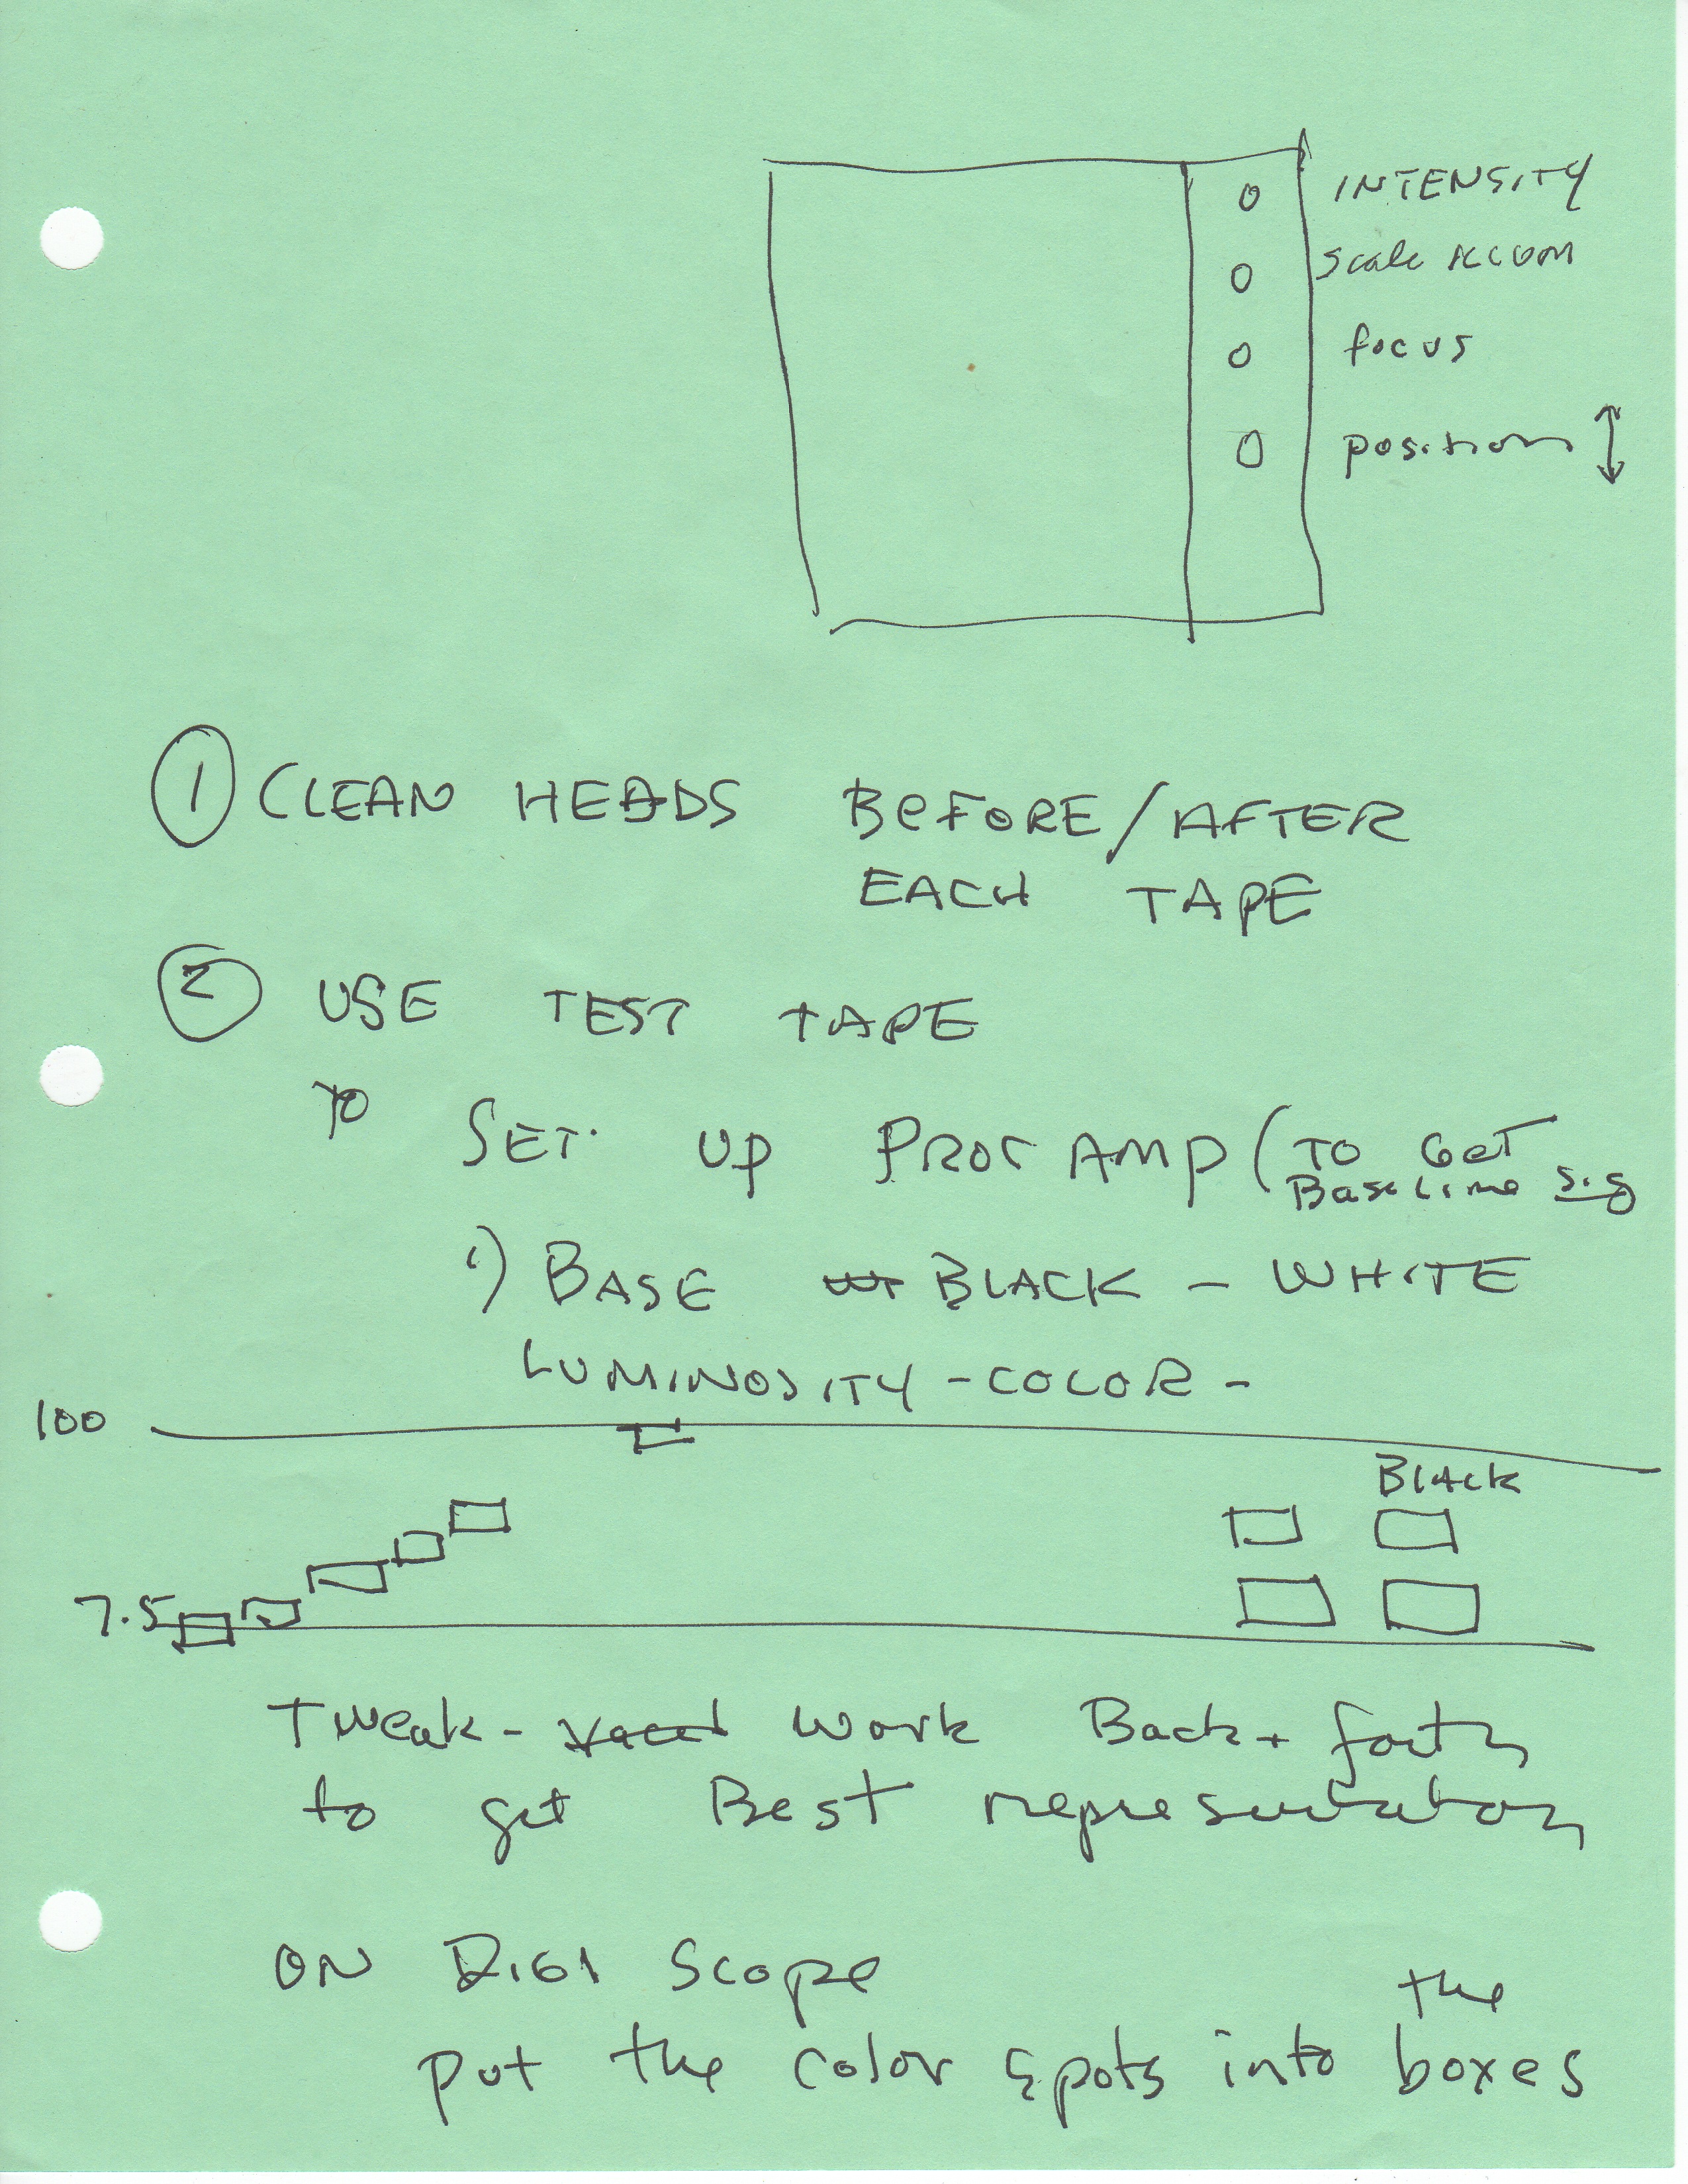 INTENSITY
scale
focus
position ↕
① CLEAN HEADS BEFORE/AFTER
EACH TAPE
② USE TEST TAPE
TO
SET UP PROC AMP (TO GET
Baseline sig
1) BASE BLACK - WHITE
LUMINOSITY - COLOR -
100
Black
7.5
Tweak - work Back + forth
to get Best representation
ON DIGI Scope
the
put the color spots into boxes